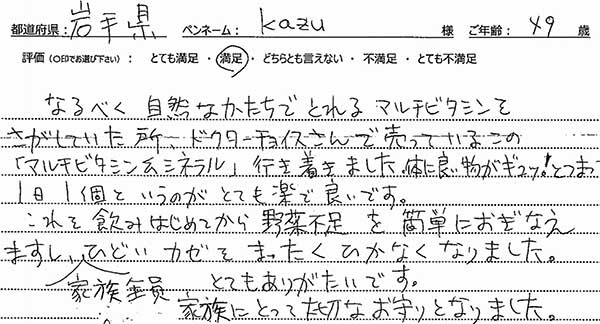 都道府県: 岩手県 ペンネーム: kazu 様 ご年齢: 49 歳
評価(○印でお選び下さい): とても満足・満足・どちらとも言えない・不満足・とても不満足
なるべく自然なかたちでとれるマルチビタミンを
さがしていた所、ドクターチョイスさんで売っているこの
「マルチビタミン&ミネラル」行き着きました。体に良い物がギュッ!とつまって
1日1個というのがとても楽で良いです。
これを飲みはじめてから野菜不足を簡単におぎなえ
ますし、ひどいカゼをまったくひかなくなりました。
家族全員 とてもありがたいです。
家族にとって大切なお守りとなりました。